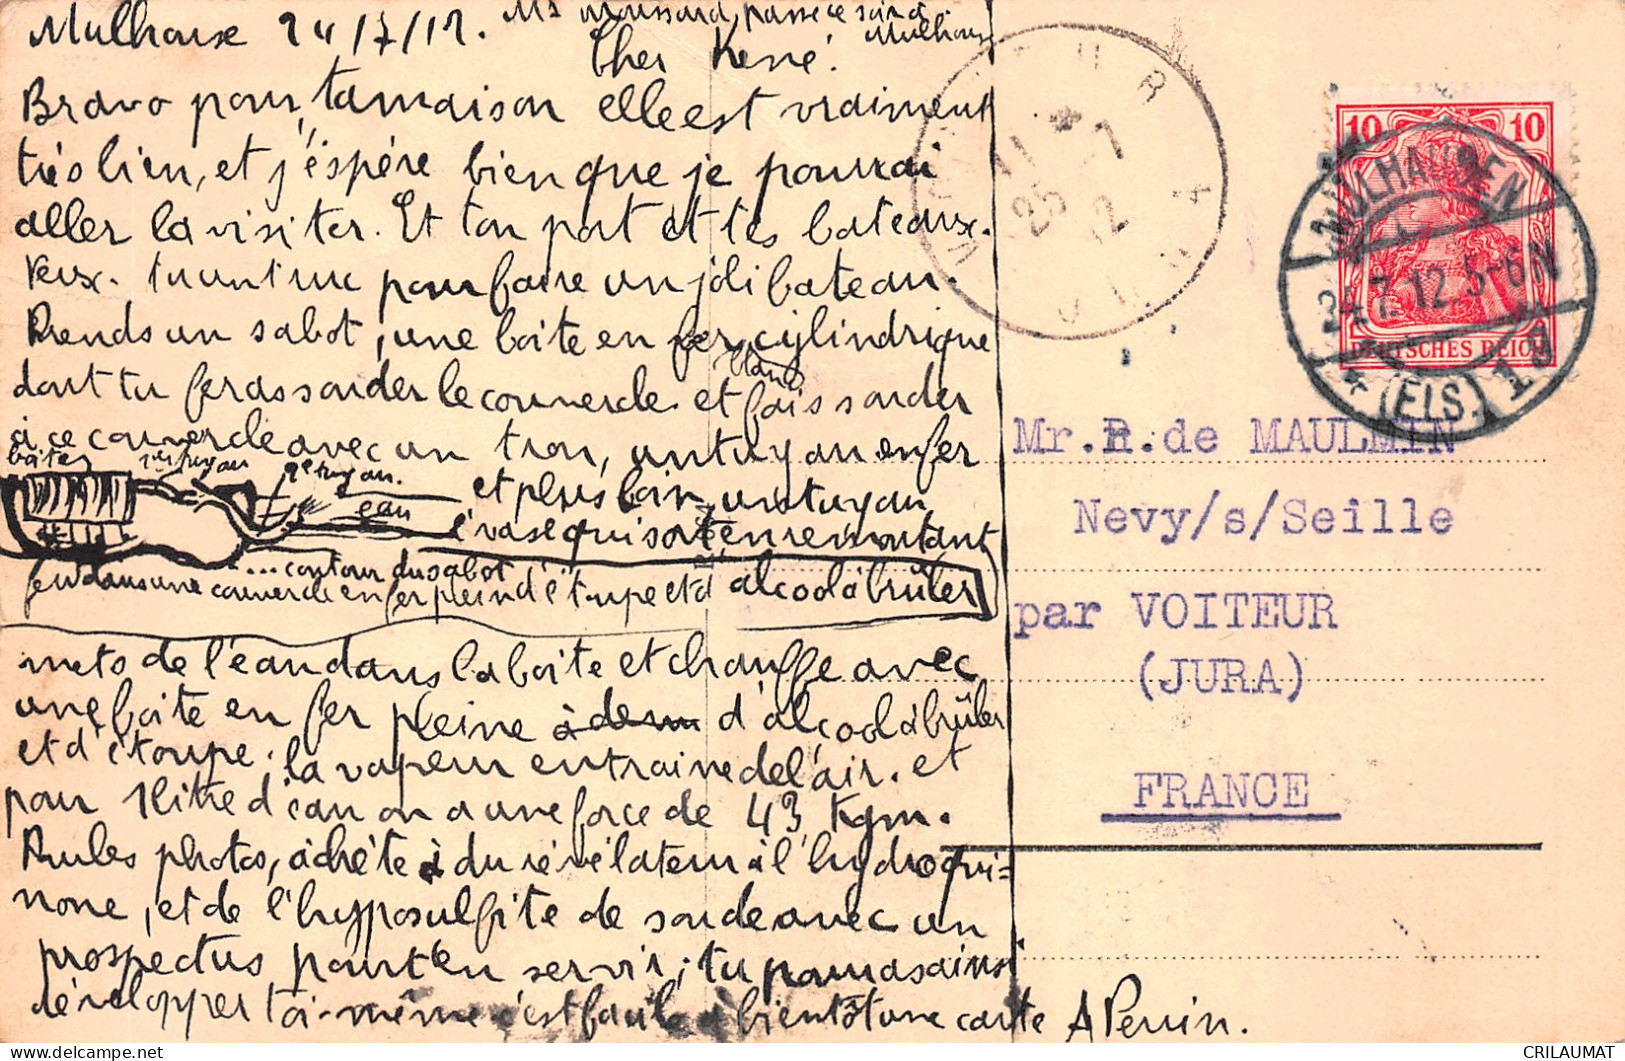 Mulhouse 24/7/12. Mr Moussard, passe ce soir à Mulhouse
Cher René.
Bravo pour ta maison elle est vraiment
très bien, et j'éspére bien que je pourrai
aller la visiter. Et ton port et tes bateaux.
Veux-tu un truc pour faire un joli bateau.
Prends un sabot, une boite en fer blanc cylindrique
dont tu feras souder le couvercle et fais souder
à ce couvercle avec un trou, un tuyau en fer
et plus loin, un tuyau
évasé qui sort en remontant
boite
1er tuyau
2e tuyau.
eau
... contour du sabot
feu dans une couvercle en fer plein d'étoupe et d'alcool à brûler
mets de l'eau dans la boite et chauffe avec
une boite en fer pleine d'alcool à brûler
et d'étoupe. la vapeur entraine de l'air. et
pour 1 litre d'eau on a une force de 43 kgm.
Pr les photos, achéte du révélateur à l'hydroqui=
none, et de l'hyposulfite de soude avec un
prospectus pour t'en servir, tu pourras ainsi
développer toi-même c'est facile à bientôt une carte A Perrin.
10 10
DEUTSCHES REICH
MÜLHAUSEN
24.7.12.5-6N
* (ELS.) 1
11 *
25 - 7
12
JURA
Mr.R.de MAULMIN
Nevy/s/Seille
par VOITEUR
(JURA)
FRANCE
CRILAUMAT